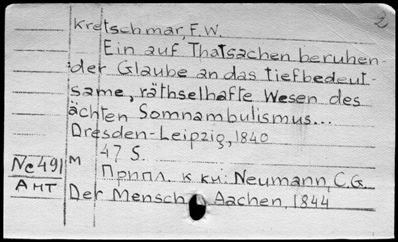 2
Kretschmar, F.W.
Ein auf Thatsachen beruhen-
der Glaube an das tiefbedeut-
same, räthselhafte Wesen des
ächten Somnambulismus...
Dresden-Leipzig, 1840
47 S.
No 491 м
АНТ
Припл. к кн.: Neumann, C.G.
Der Mensch Aachen, 1844